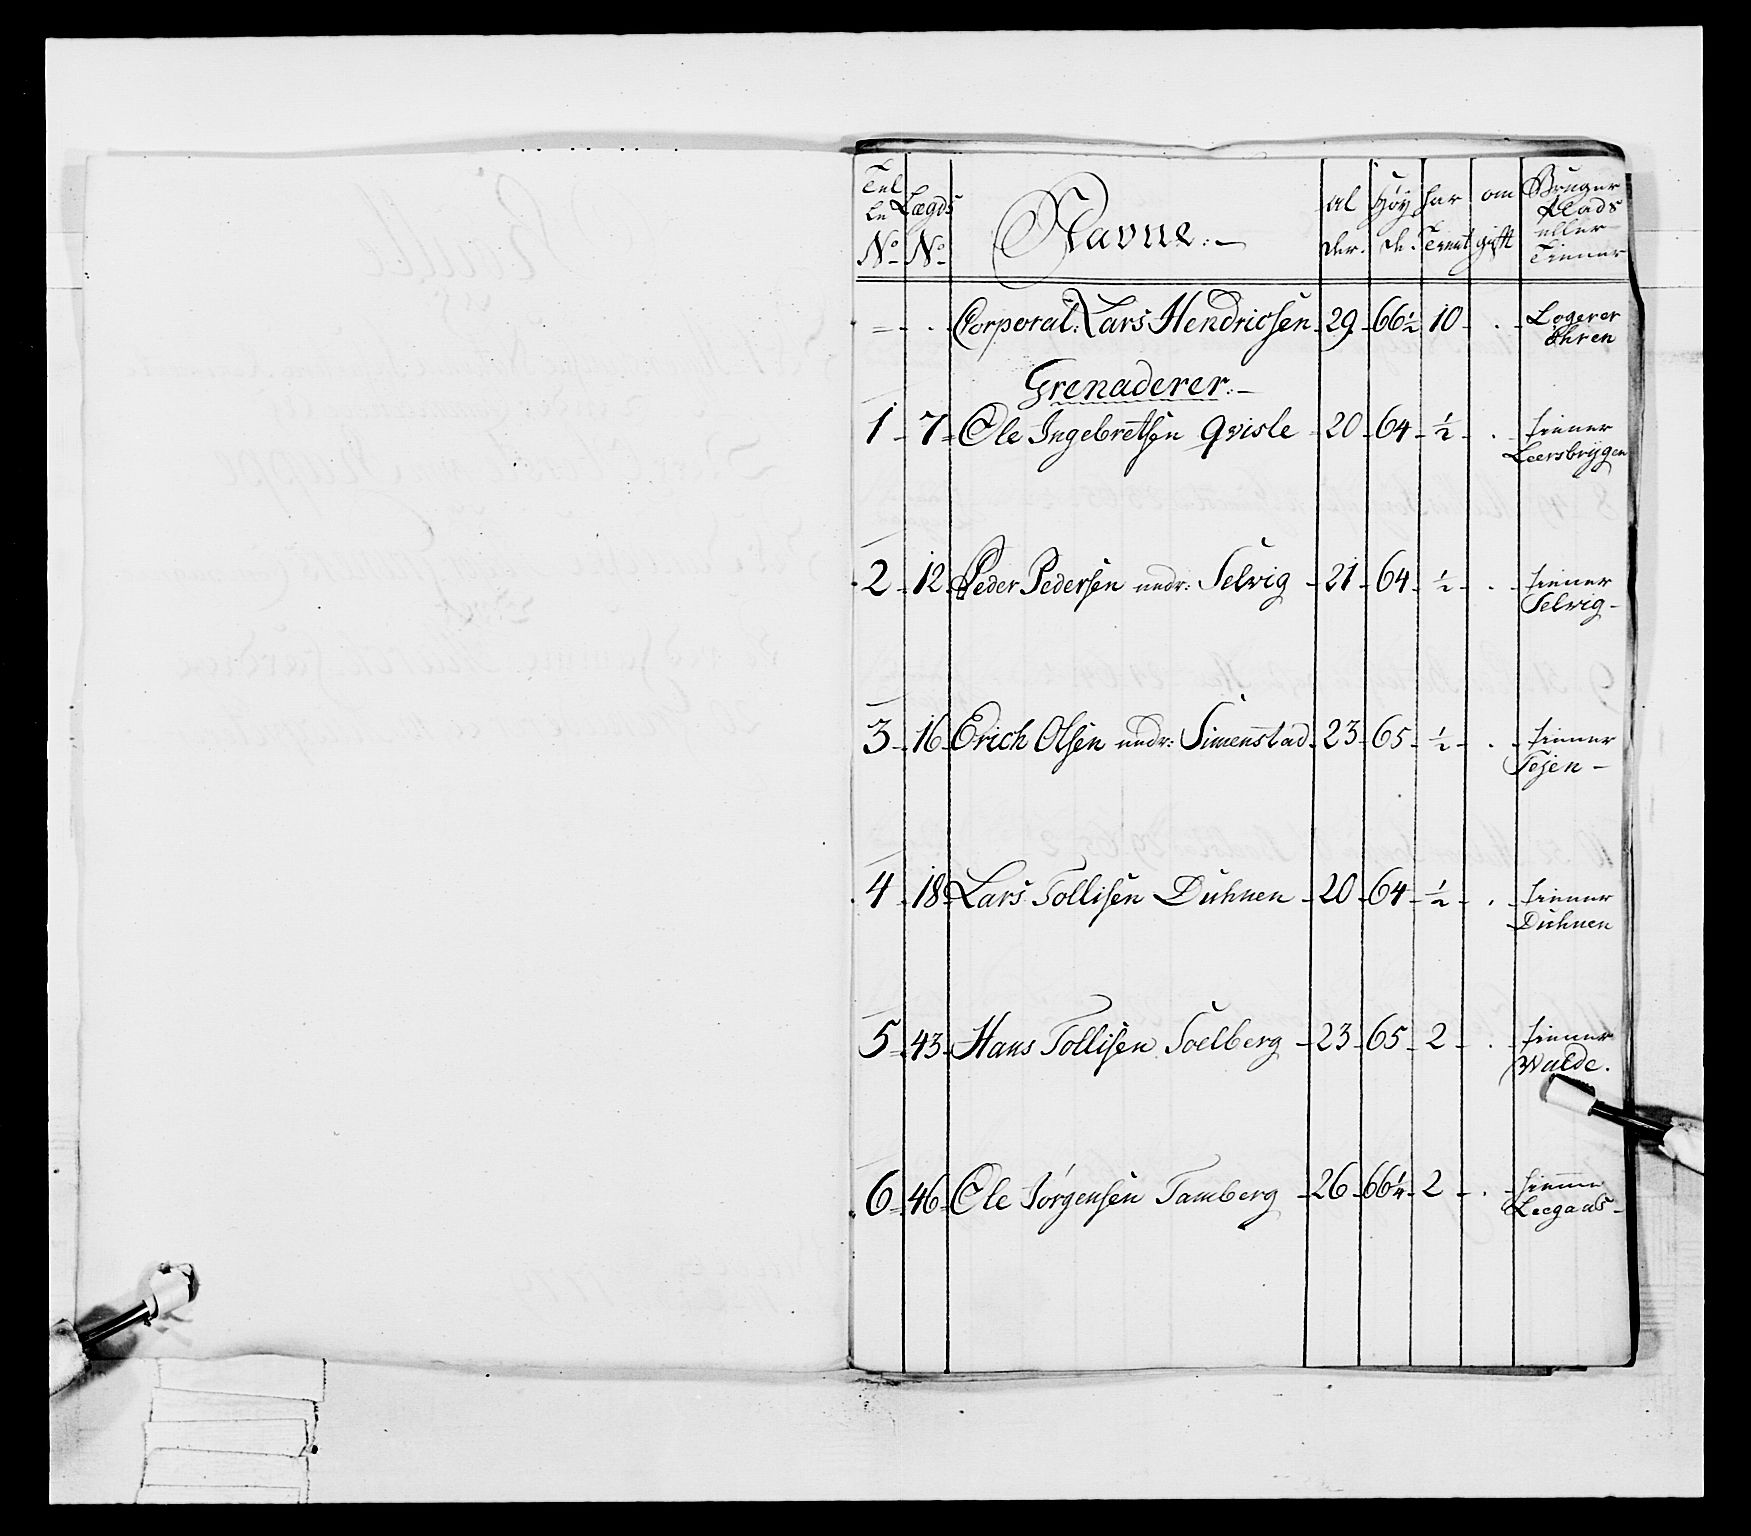 Tal Lægds al Høy har om Bruger
le Navne:- Plads
No No der. de. Tient gift eller
Tienner
= . Corporal: Lars Hendricsen 29 66½ 10 . Logerer
Ehren
Grenaderer:-
1 7 Ole Ingebretsen Qvisle 20 64 ½ . tienner
Leersbrygen
2 12 Peder Pedersen nedr: Selvig 21 64 ½ . tienner
Selvig
3 16 Erich Olsen nedr: Simenstad 23 65 ½ . tienner
Tejen
4 18 Lars Tollisen Duhnen 20 64 ½ . tienner
Duhnen
5 43 Hans Tollisen Soelberg 23 65 2 . tienner
Walde.
6 46 Ole Jørgensen Tamberg 26 66¼ 2 . tienner
Leegaas